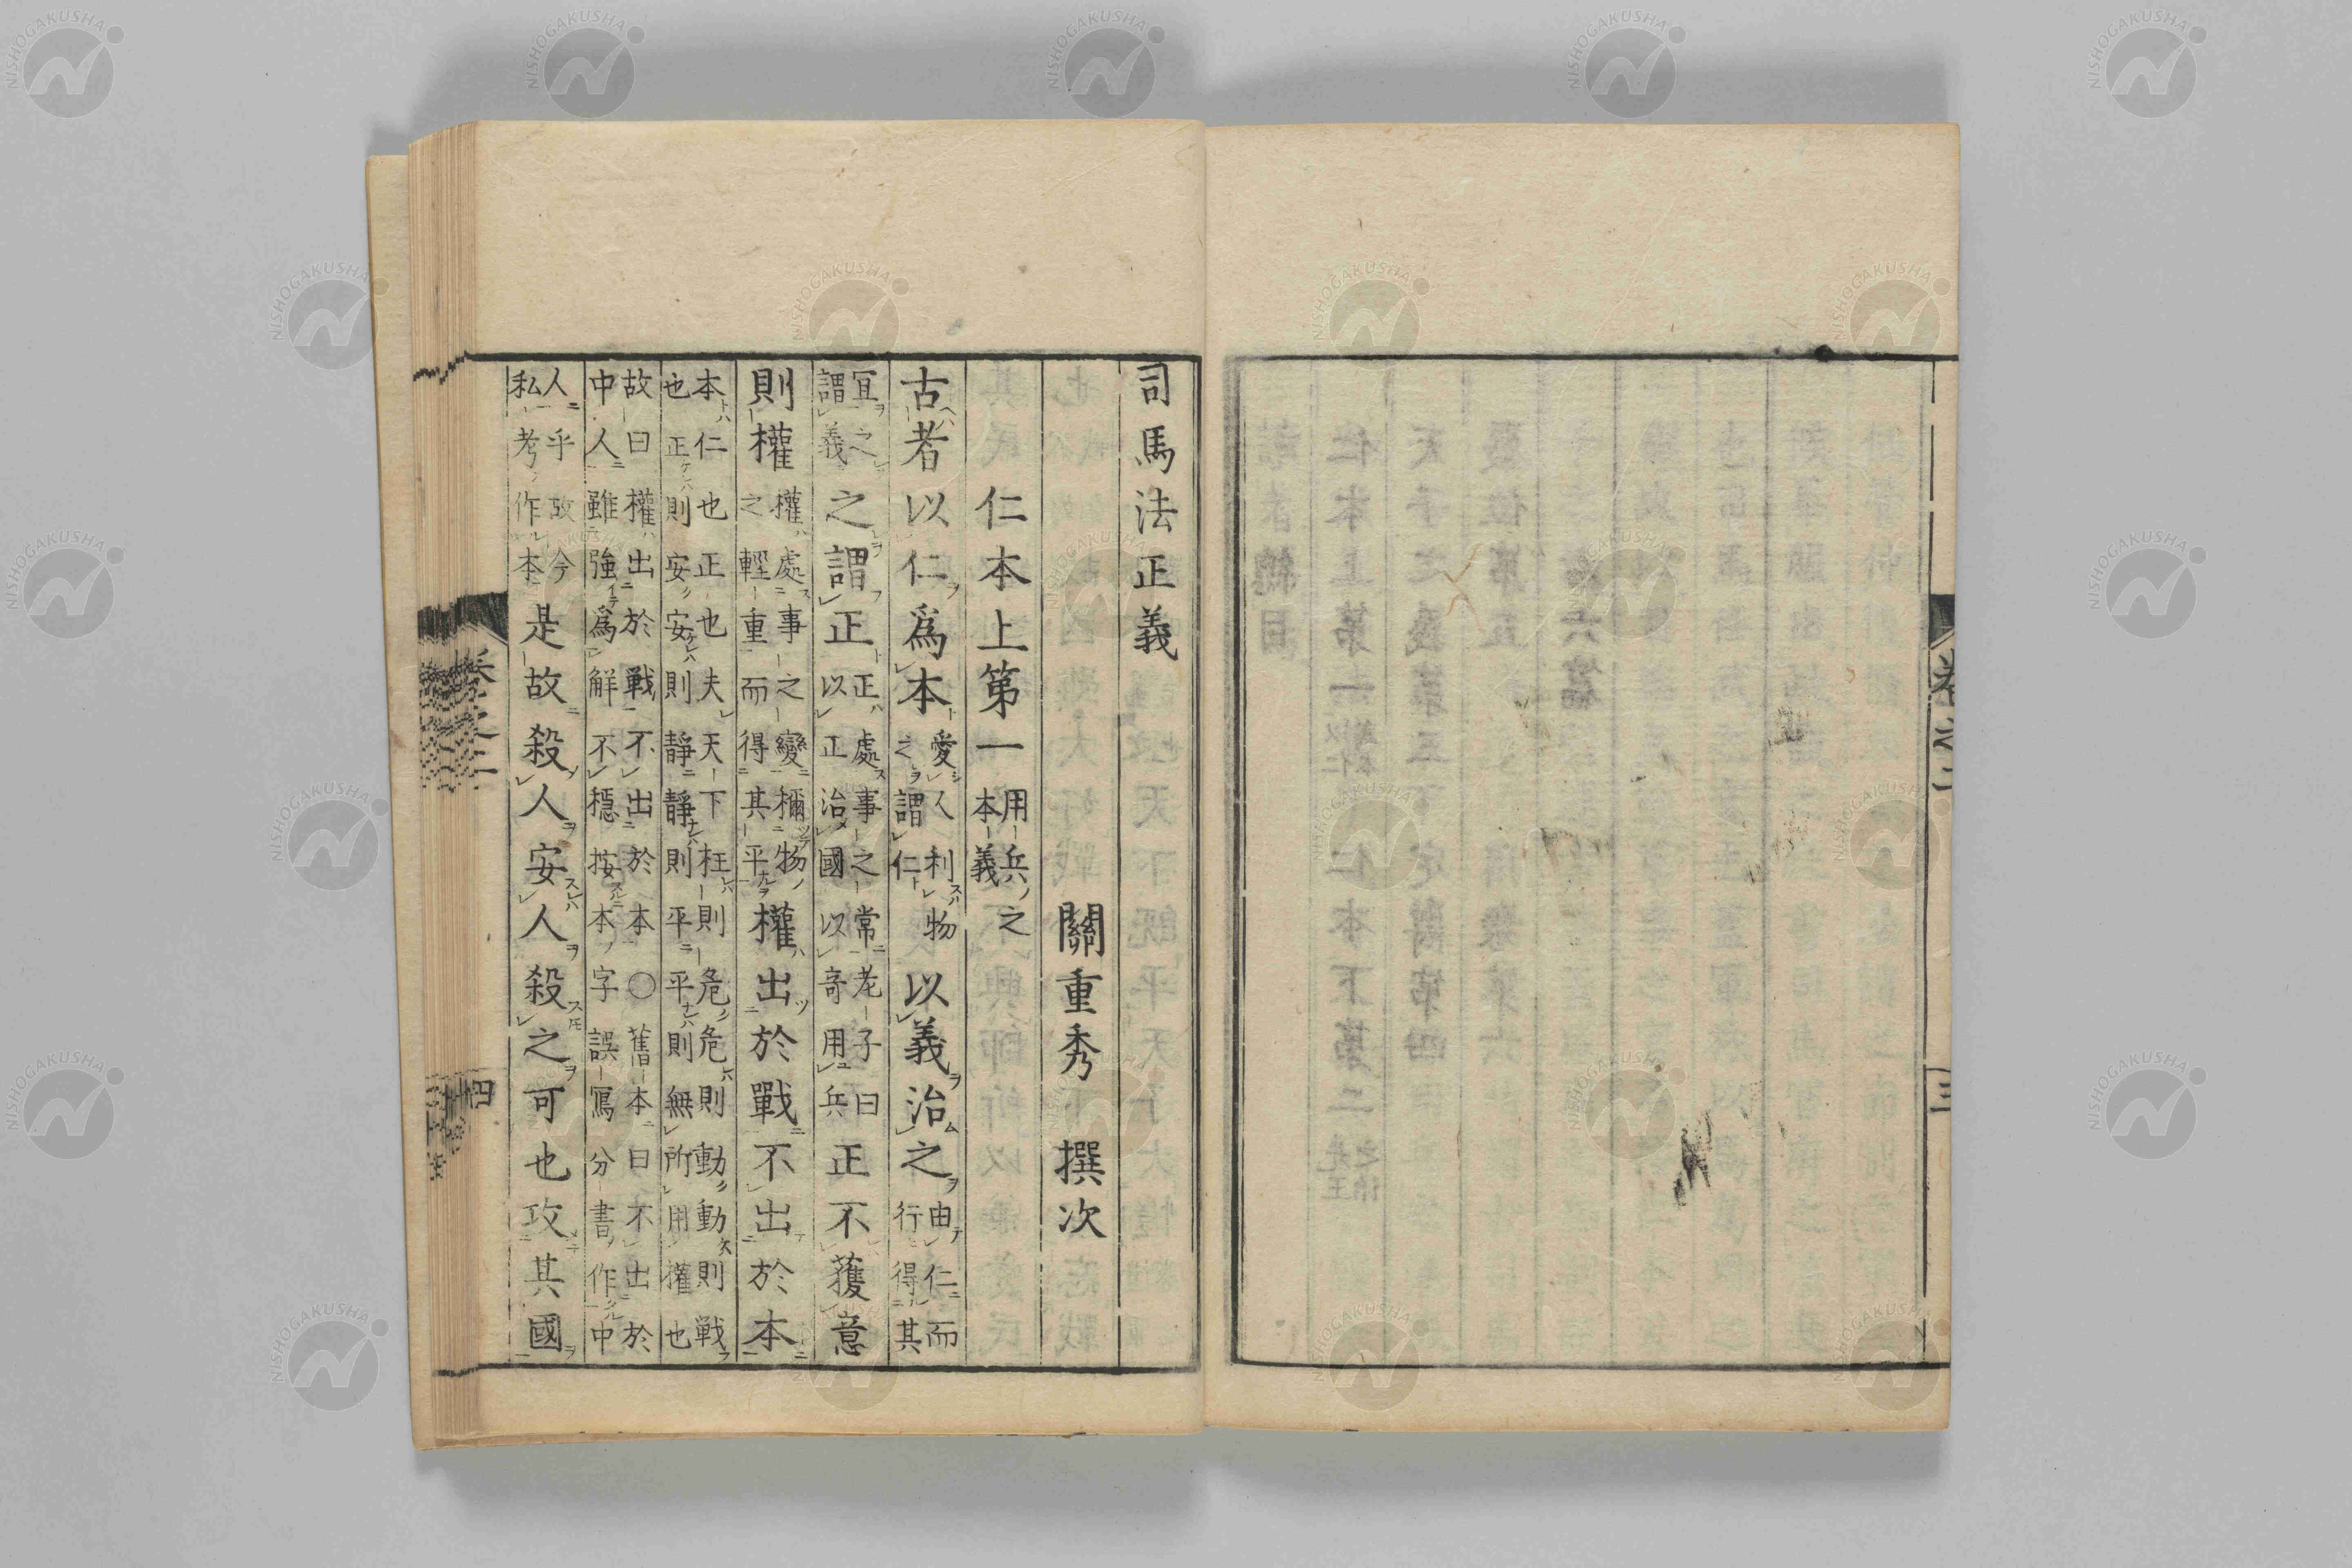 司馬法正義
關重秀 撰次
仁本上第一 用兵之本義
古者以仁爲本 愛人利物之謂仁 以義治之 由仁而行得其
宜之謂義 之謂正 正處事之常以正治國 老子曰以奇用兵 正不獲意
則權 權處事之變稱物之輕重而得其平 權出於戰不出於本
本仁也正也夫天下枉則危危則動動則戦也正則安安則靜靜則平平則無所用權也
故曰權出於戦不出於本○舊本曰不出於中人雖強爲解不穩按本字誤寫分書作中
人乎故今私考作本 是故殺人安人殺之可也攻其國
卷之二
四
卷之二
三
NISHOGAKUSHA